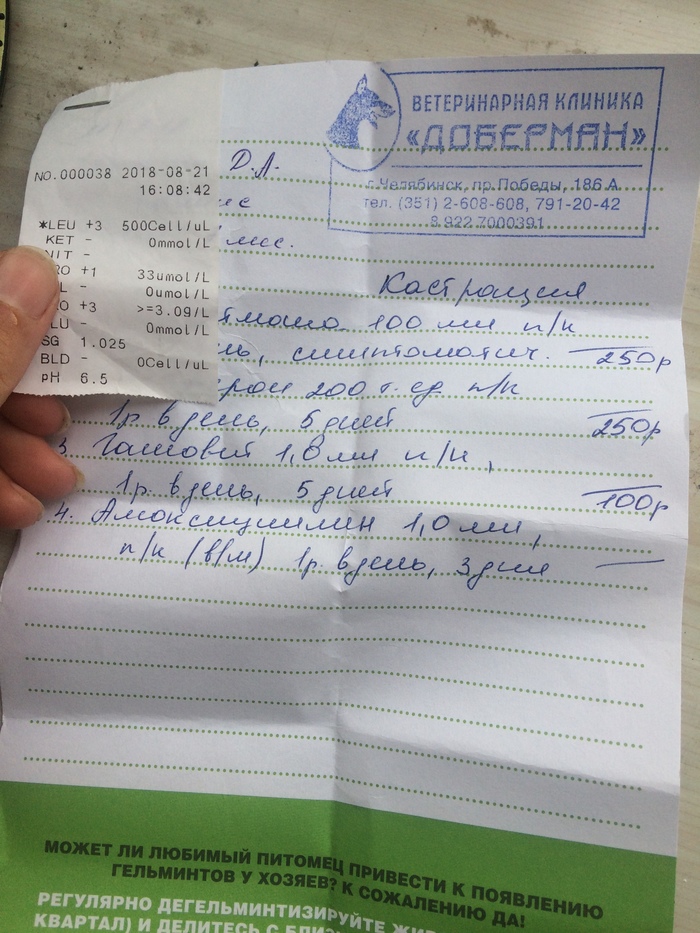 ВЕТЕРИНАРНАЯ КЛИНИКА
«ДОБЕРМАН»
г.Челябинск, пр.Победы, 186 А
тел. (351) 2-608-608, 791-20-42
8 922 7000391
NO.000038 2018-08-21
16:08:42
*LEU +3 500Cell/uL
KET - 0mmol/L
NIT -
RO +1 33umol/L
L - 0umol/L
RO +3 >=3.09/L
LU - 0mmol/L
SG 1.025
BLD - 0Cell/uL
pH 6.5
Д.А.
мес.
Кастрация
100 мл п/к
симптоматич. 250р
200 т.ед п/к
1р. в день, 5 дней 250р
3. Гамовит 1,0 мл п/к,
1р. в день, 5 дней 100р
4. Амоксициллин 1,0 мл,
п/к (в/м) 1р. в день, 3 дня —
МОЖЕТ ЛИ ЛЮБИМЫЙ ПИТОМЕЦ ПРИВЕСТИ К ПОЯВЛЕНИЮ
ГЕЛЬМИНТОВ У ХОЗЯЕВ? К СОЖАЛЕНИЮ ДА!
РЕГУЛЯРНО ДЕГЕЛЬМИНТИЗИРУЙТЕ
КВАРТАЛ) И ДЕЛИТЕСЬ С